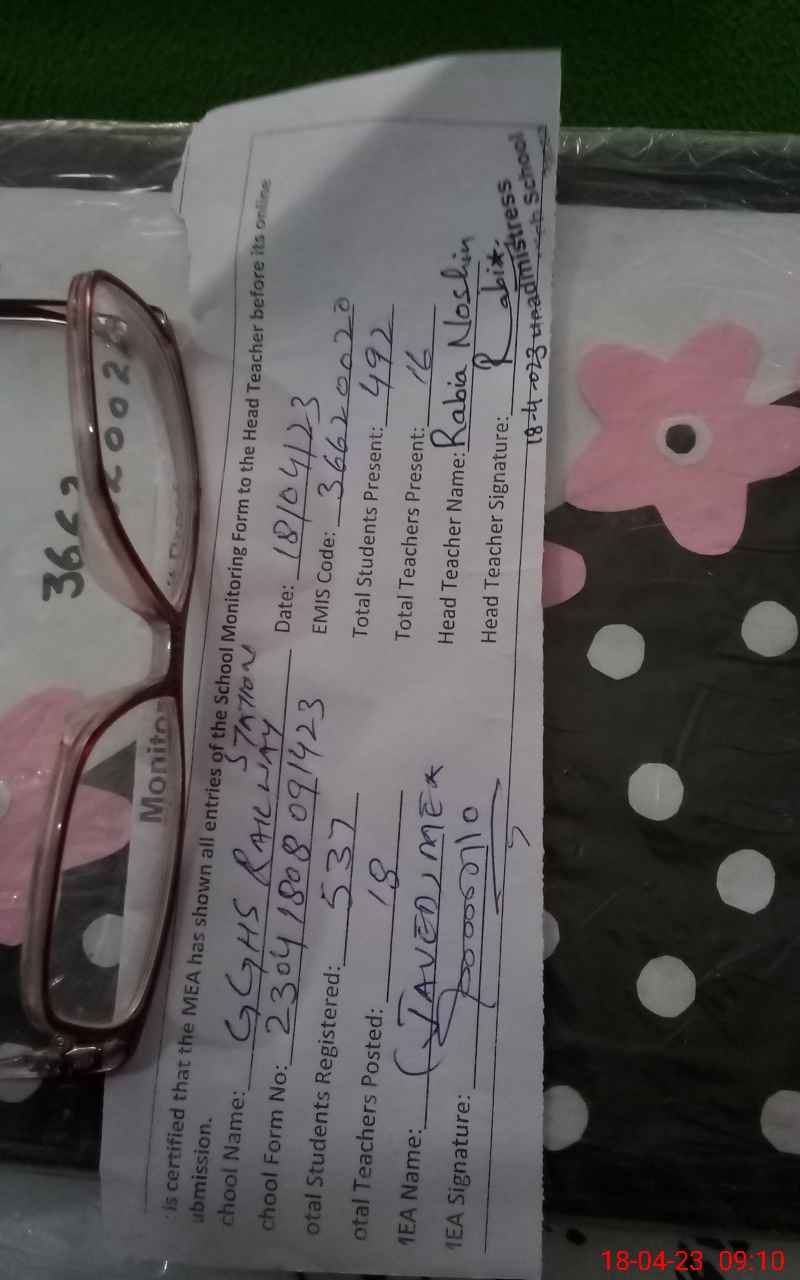 36620020
Monitor
is certified that the MEA has shown all entries of the School Monitoring Form to the Head Teacher before its online
ubmission.
chool Name: GGHS RAILWAY STATION Date: 18/04/23
chool Form No: 23041808091423 EMIS Code: 36620020
otal Students Registered: 537 Total Students Present: 492
otal Teachers Posted: 18 Total Teachers Present: 16
1EA Name: (JAVED, MEA Head Teacher Name: Rabia Noshin
1EA Signature: Head Teacher Signature: Rabia
18-4-023 eadmistress
School
18-04-23 09:10